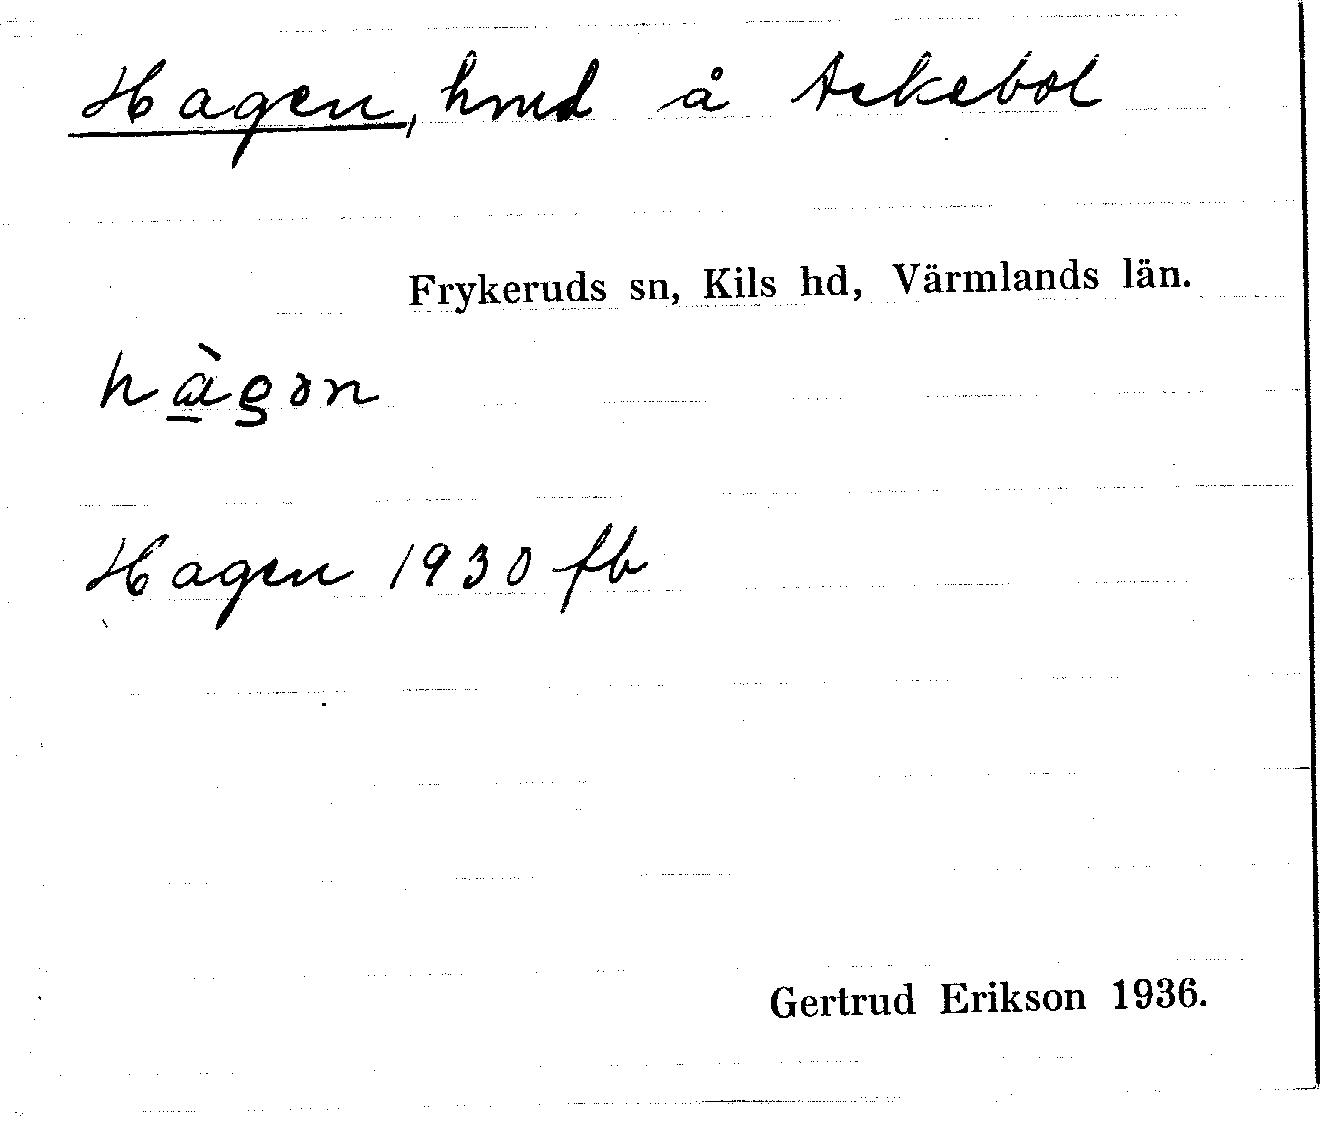 Hagen, hmd å Askebol
Frykeruds sn, Kils hd, Värmlands län.
hàgon
Hagen 1930 fb
Gertrud Erikson 1936.